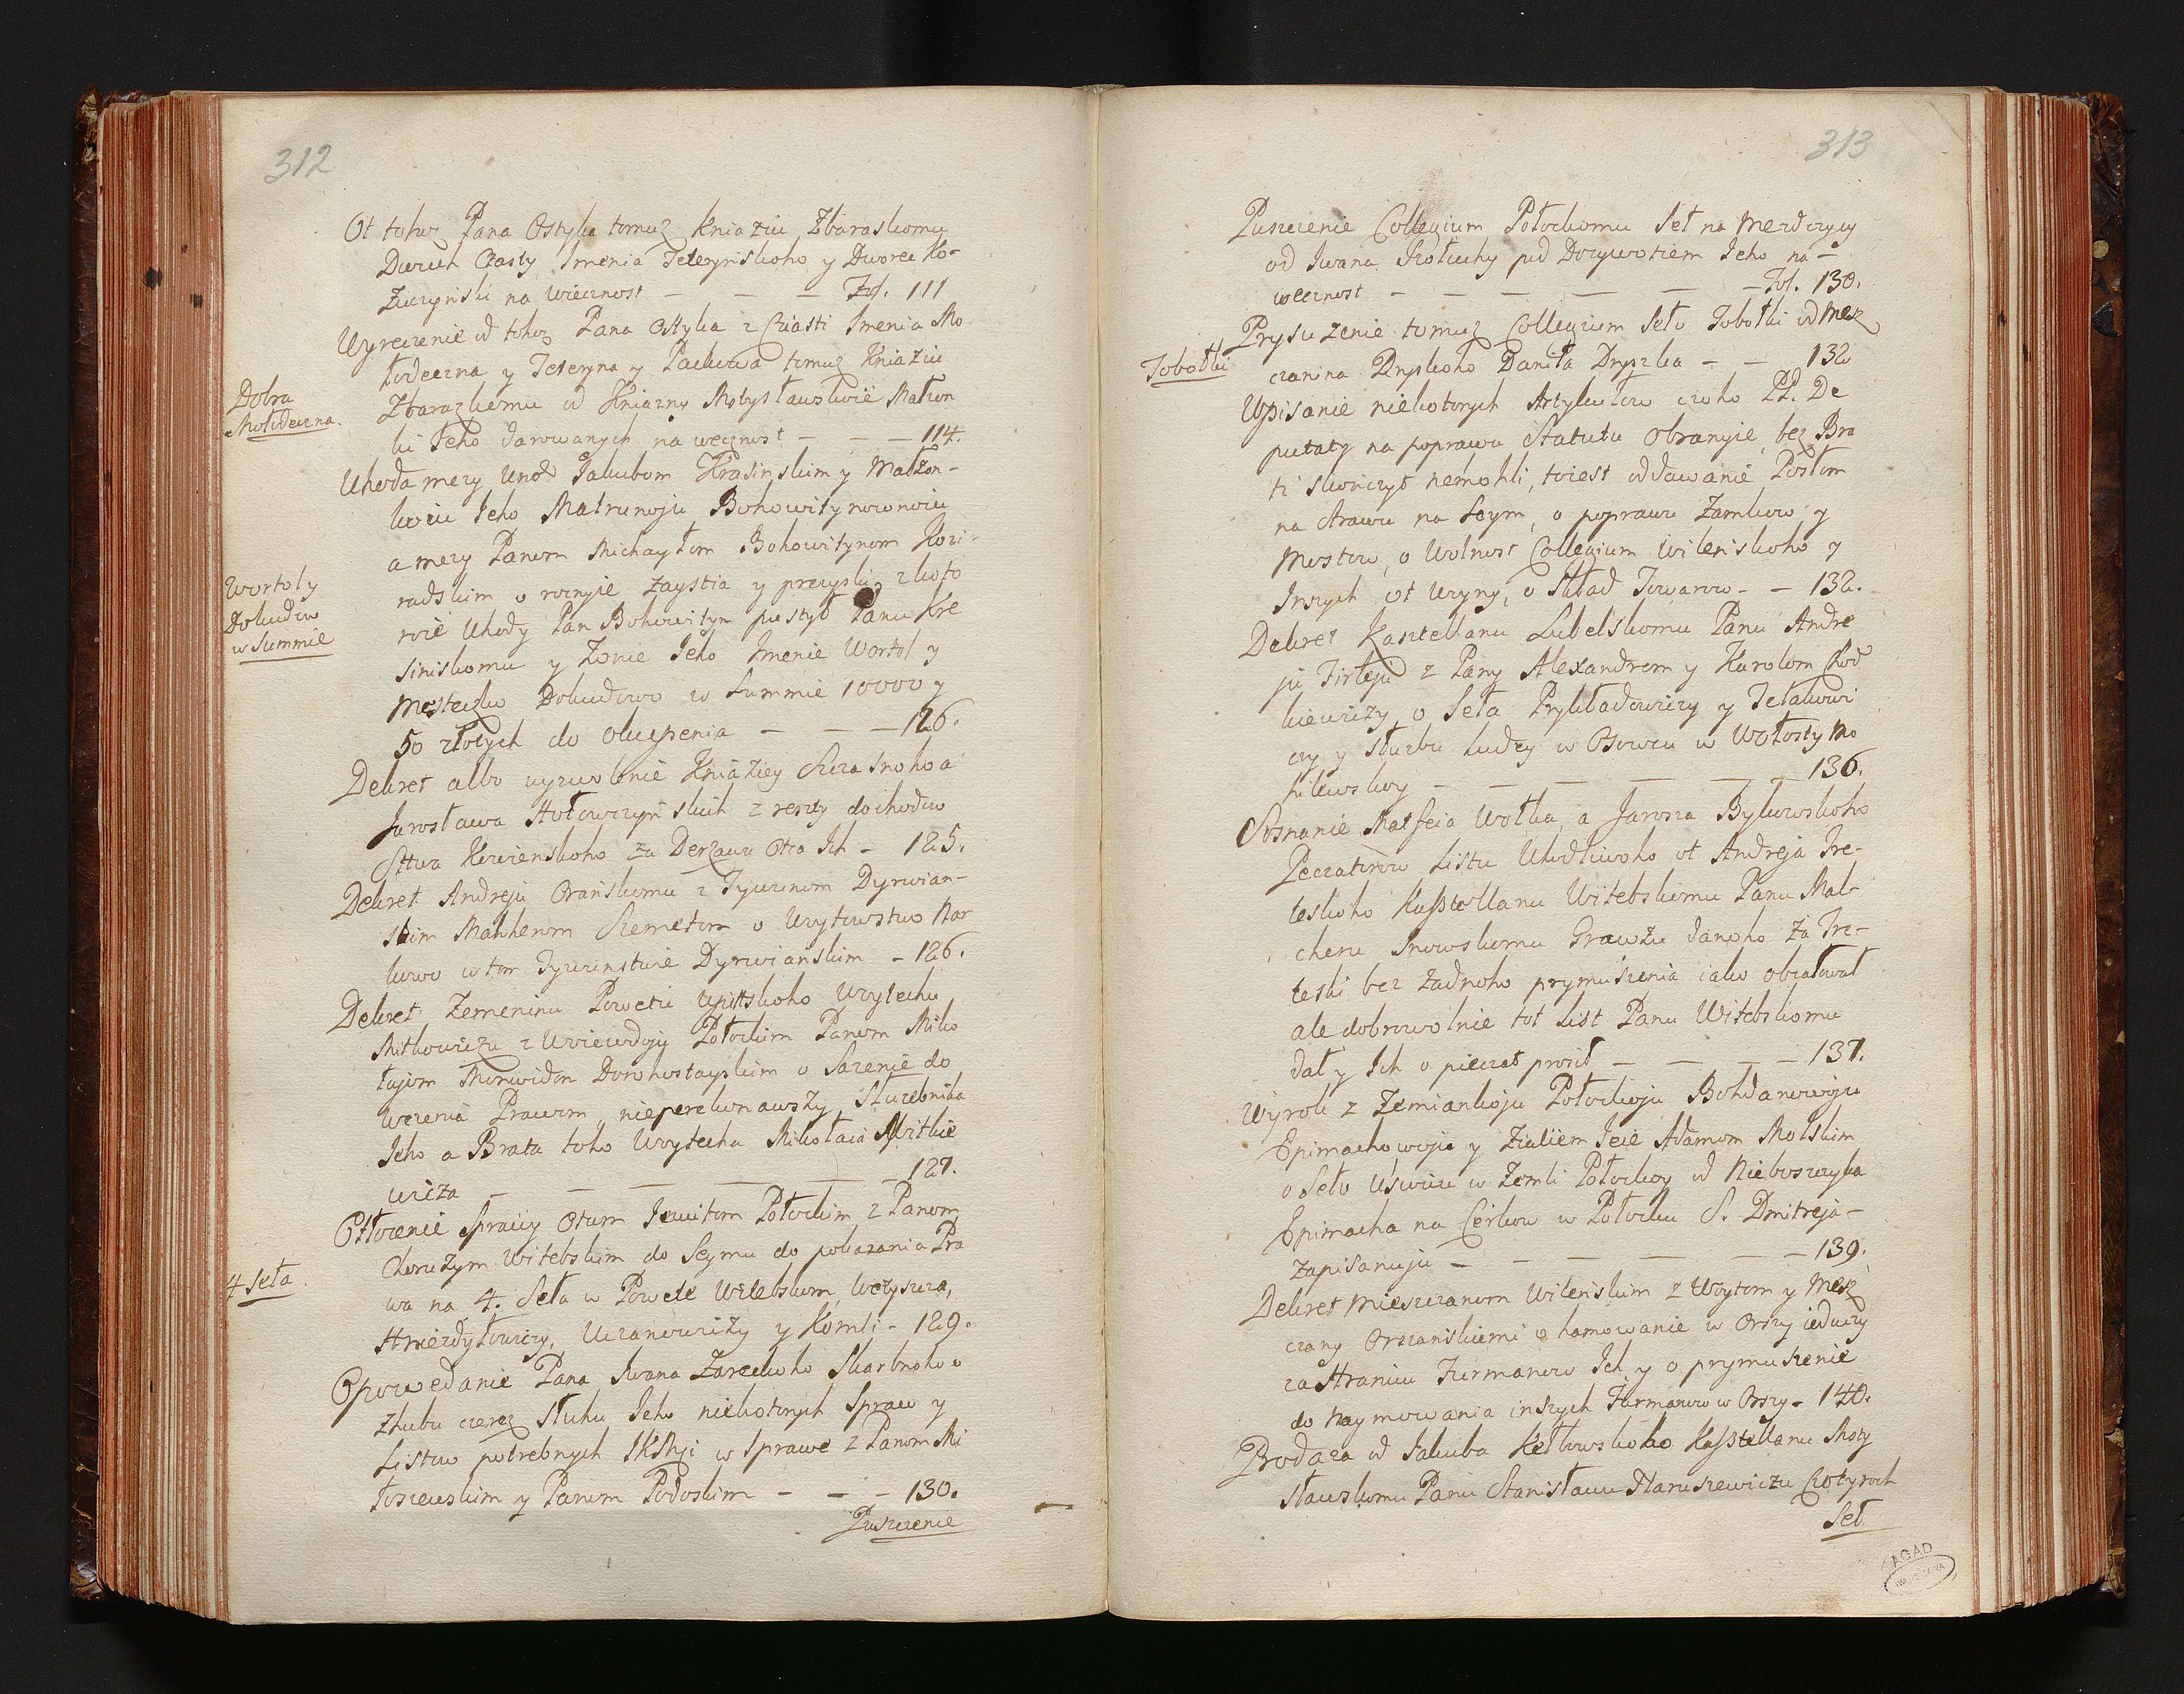 312
Ot tohoz Pana Ostyka tomuz Kniaziu Zbaraskomu
Dwuch Czasty Imenia Teterynskoho y Dworca Ko-
zuczynski na wiecznost — — — Fol. 111
Wyreczenie od tohoz Pana Ostyka z Cziasti Imenia Mo
łodeczna y Teteryna y Packowa tomuz Kniaziu
Dobra
Mołodeczna.
Zbarazkiemu od Kniazny Mstysławskoie Małżon
ki Jeho darowanych na wecznost — — — 114.
Uhoda mezy Unod Jakubom Krasinskim y Małżon-
koiu Jeho Matrunoju Bohowitynownoiu
a mezy Panem Michayłom Bohowitynom Kozi-
radskim o roznyie Zaystia y prezyski, z koto
Wortol y
Dokudow
w Summie
roie Uhody Pan Bohowityn pustył Panu Kre
siniskomu y Zonie Jeho Imenie Wortol y
Mesteczko Dokudowo w Summie 10000 y
50 złotych do okupenia — — — 126.
Dekret albo wyzwolenie Kniaziey Szczasnoho a
Jarosława Hołowczynskich z reszty dochodow
Sttwa Kewienskoho za Derzawu Otca Ich — 125.
Dekret Andreju Oranskomu z Tywunom Dyrwian-
skim Malcherom Szemetom o Woytowstwo Nar
kowo w tom Tywunstwie Dyrwianskim — 126.
Dekret Zemeninu Powetu Upittskoho Woytechu
Mitkowiczu z Woiewodoju Połockim Panom Miko
łajom Monwidom Dorohostayskim o Sazenie do
wezenia Prawom nieperekonawszy Służebnika
Jeho a Brata toho Woytecha Mikołaia Mitkie
wicza — — — — — 127.
Otłozenie Sprawy Otcom Jezuitom Połockim z Panom
Choruzym Witebskim do Seymu do pokazania Pra
4 Seła.
wa na 4. Seła w Powete Witebskom, Wetyszcza,
Hnierdyłowiczy, Uczanowiczy y Komli — 129.
Opowedanie Pana Iwana Zareckoho Skarbnoho o
zhubu czerez Słuhu Jeho niekotorych Spraw y
Listow potrebnych IKMci w Sprawe z Panom Mi
łoszewskim y Panem Podoskim — — — 130.
Puszczenie
313
Puszczenie Collegium Połockomu Seł na Merdczycy
od Iwana Trołuchy pod Dozywotiem Jeho na —
wecznost — — — — — — Fol. 130.
Prysuzenie tomuz Collegium Seło Tobołki od Mesz
Tobołki
czanina Dryskoho Daniła Dryszka — — 132
Wpisanie niekotorych Artykułow czoho PP. De
putaty na poprawu Statutu obranyie, bez Bra
ti skonczył nemohli, toiest oddawanie Posłom
na strawu na Seym, o poprawu Zamkow y
Mostow, o Wolnost Collegium Wilenskoho y
Inszych ot Wyny, o Skład Towarow — — 132.
Dekret Kasztellanu Lubelskomu Panu Andre
ju Firleju z Pany Alexandrom y Karolom Chod
kiewiczy, o Seła Prykładowiczy y Telakowi
czy y Służbu ludzey w Osowcu w Wołosty Mo
hilewskoy — — — — — 136.
Soznanie Matfeia Wołka, a Jarosza Bykowskoho
Peczatarow Listu Uhodliwoho ot Andreja Tre-
teskoho Kaszttellanu Witebskomu Panu Mal-
cheru Snowskomu Grawżu danoho za Tre-
teski bez zadnoho prymuszenia iako obzałował
ale dobrowolnie tot List Panu Witebskomu
dał y Ich o pieczat prosił — — — 137.
Wyrok z Zemiankoju Połockoju Bohdanowoju
Epimachowoju y Ziatiem Jeie Adamom Molskim
o Seło Uswicu w Zemli Połockoy od Nieboszczyka
Epimacha na Cerkow w Połocku S. Dmitreja —
Zapisanuju — — — — — 139.
Dekret Mieszczanom Wilenskim z Woytom y Mesz
czany Orszanskiemi o hamowanie w Orszy ieduczy
za Hranicu Furmanow Ich y o prymuszenie
do naymowania inszych Furmanow w Orszy — 140.
Prodaza od Jakuba Kettowskoho Kaszttellanu Msty
sławskomu Panu Stanisławu Naruszewiczu Czotyroch
Seł
AGAD
WARSZAWA